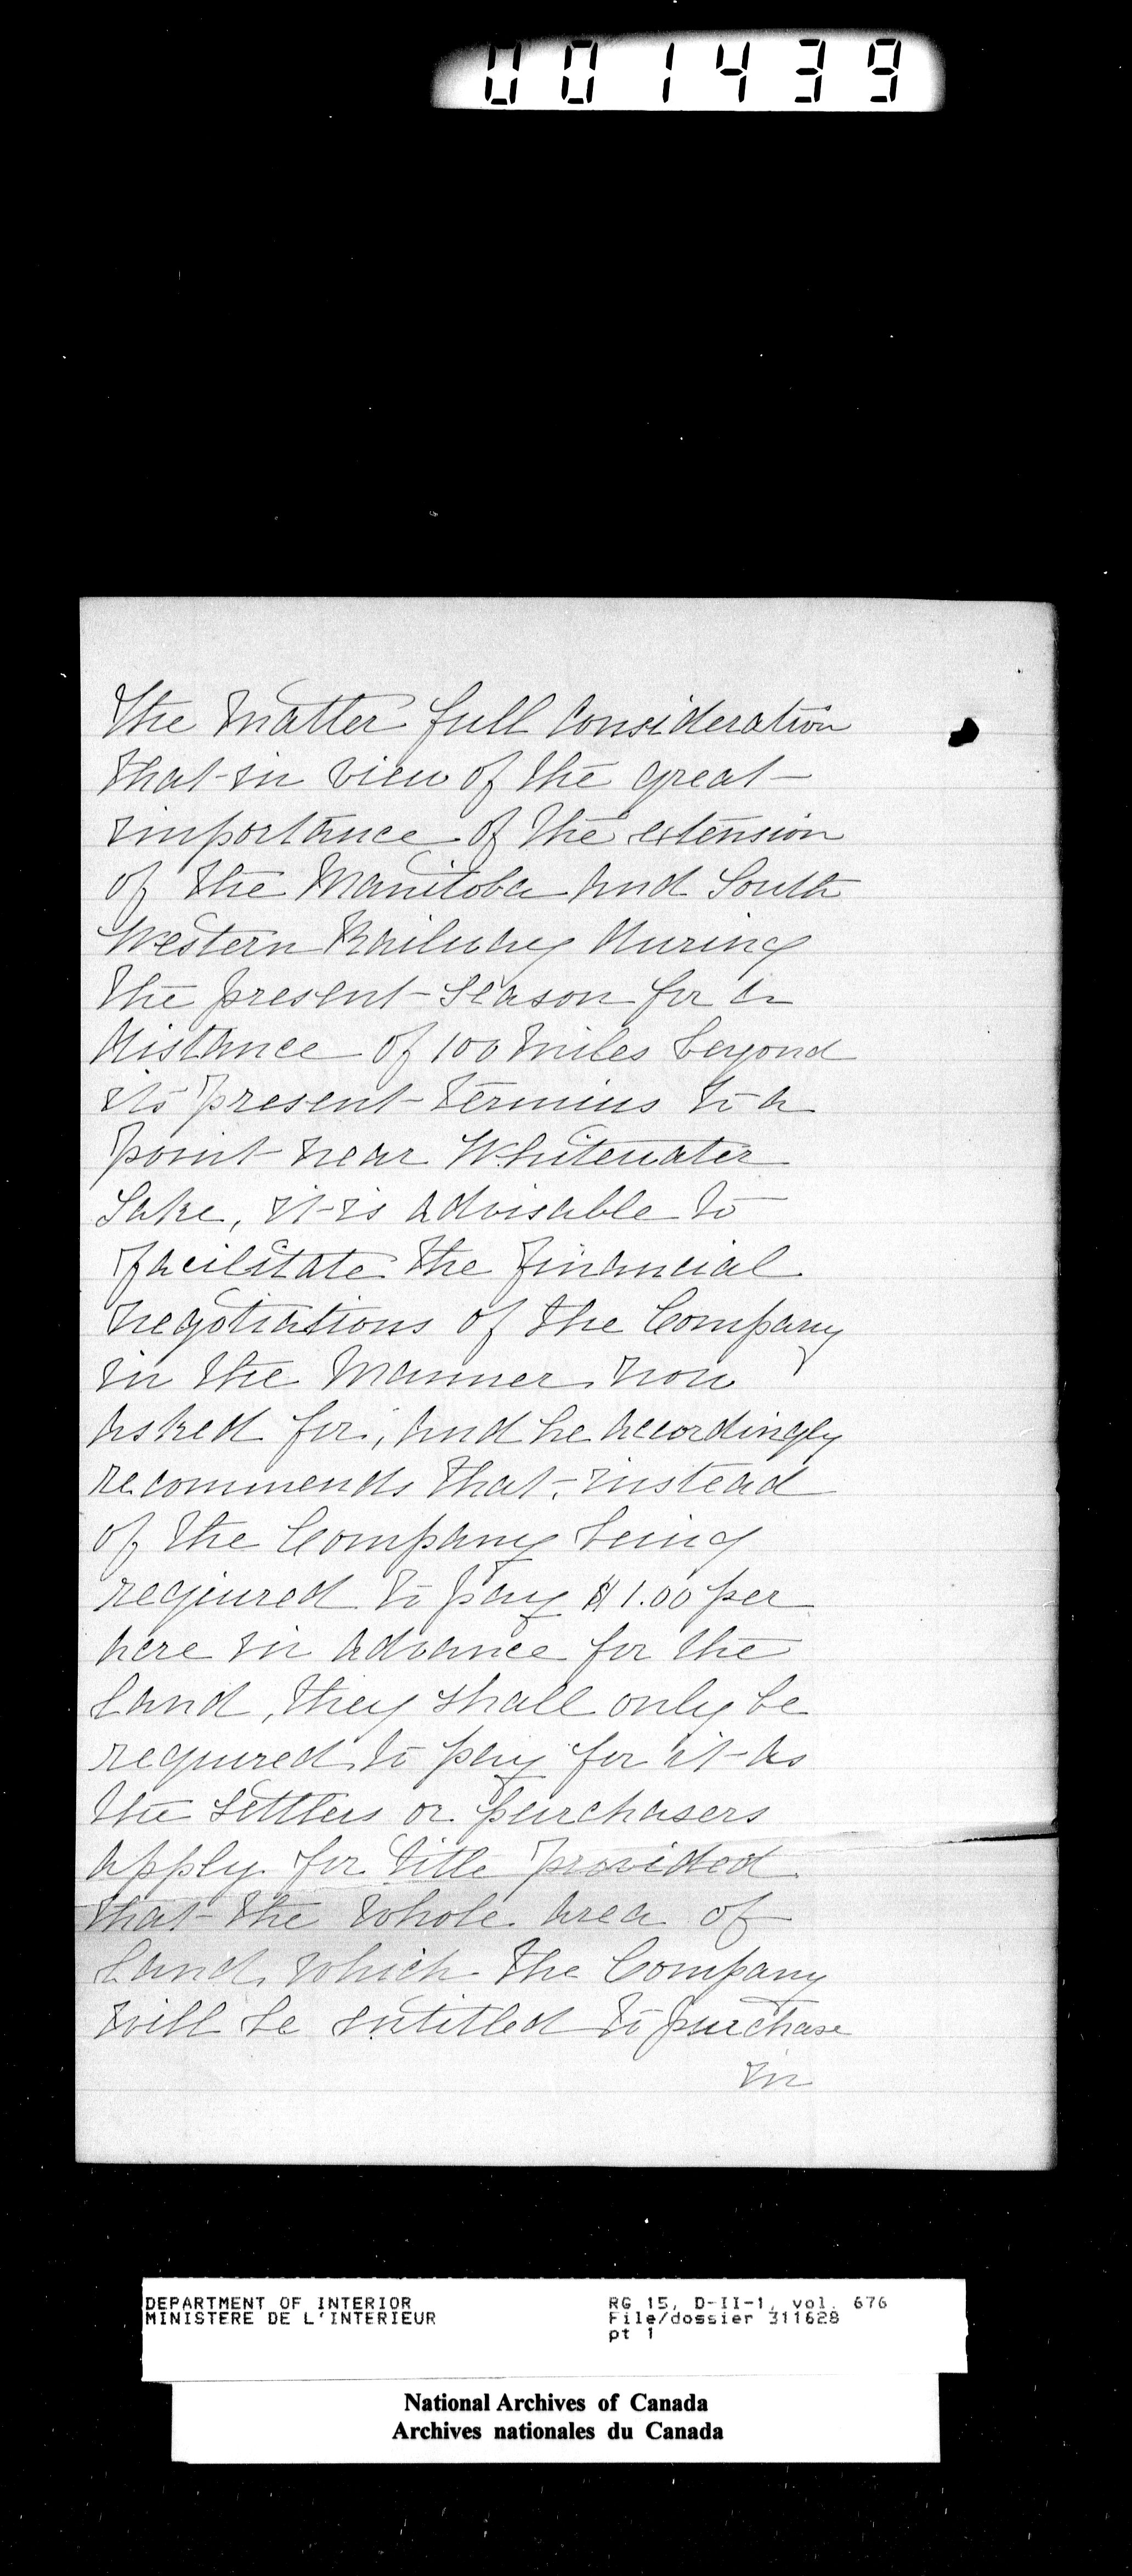 001439
the matter full consideration
that in view of the great
importance of the extension
of the Manitoba and South
Western Railway during
the present season for a
distance of 100 miles beyond
its present terminus to a
point near Whitewater
Lake, it is advisable to
facilitate the financial
negotiations of the Company
in the manner now
asked for, and he accordingly
recommends that, instead
of the Company being
required to pay $1.00 per
acre in advance for the
land, they shall only be
required to pay for it as
the settlers or purchasers
apply for title provided
that the whole area of
land, which the Company
will be entitled to purchase
in
DEPARTMENT OF INTERIOR
MINISTERE DE L'INTERIEUR
RG 15, D-II-1, vol. 676
File/dossier 311628
pt 1
National Archives of Canada
Archives nationales du Canada